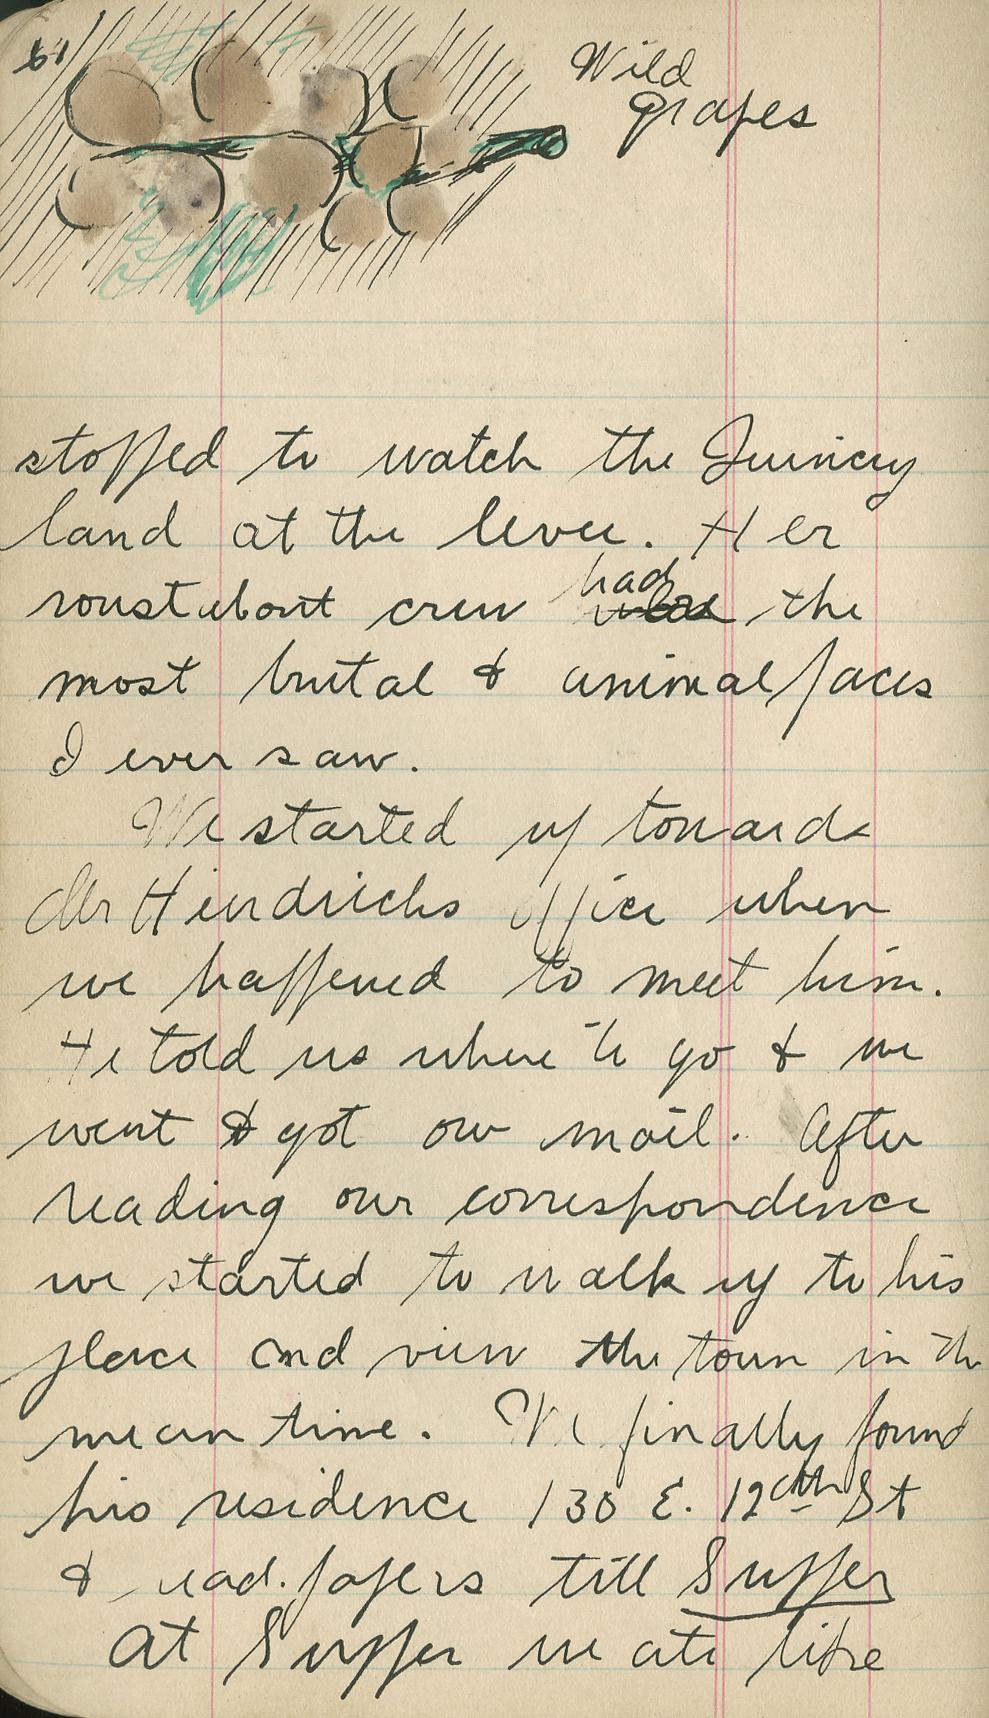 61
Wild
grapes
stopped to watch the Quincy
land at the levee. Her
roustabout crew had the
most brutal & animal faces
I ever saw.
We started up towards
Mr Hendrichs office when
we happened to meet him.
He told us where to go & we
went & got our mail. After
reading our correspondence
we started to walk up to his
place and view the town in the
mean time. We finally found
his residence 130 E. 12th St
& read papers till Supper
At Supper we ate like